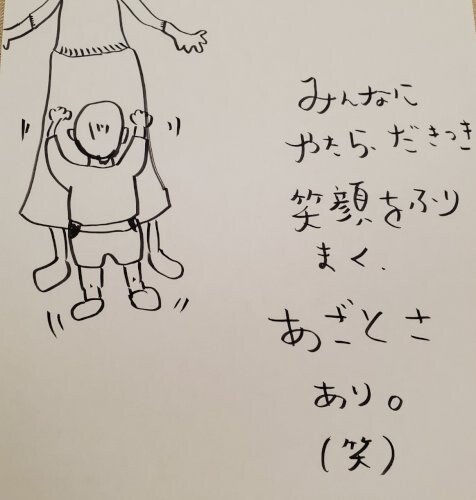 みんなに
やたら、だきつき
笑顔をふり
まく、
あざとさ
あり。
(笑)